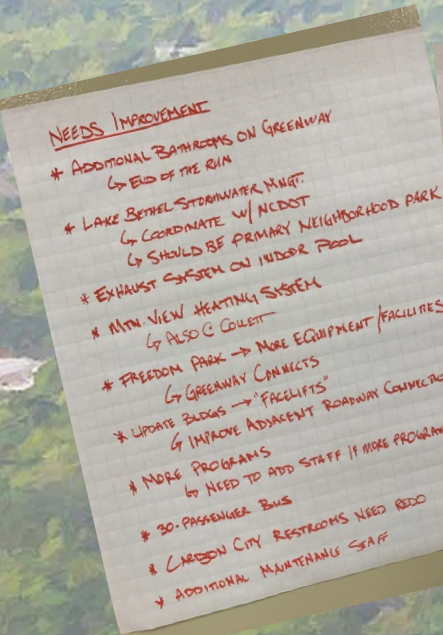 NEEDS IMPROVEMENT
* ADDITIONAL BATHROOMS ON GREENWAY
↳ END OF THE RUN
* LAKE BETHEL STORMWATER MNGT.
↳ COORDINATE W/ NCDOT
↳ SHOULD BE PRIMARY NEIGHBORHOOD PARK
* EXHAUST SYSTEM ON INDOOR POOL
* MTN. VIEW HEATING SYSTEM
↳ ALSO @ COLLETT
* FREEDOM PARK → MORE EQUIPMENT / FACILITIES
↳ GREENWAY CONNECTS
* UPDATE BLDGS → "FACELIFTS"
↳ IMPROVE ADJACENT ROADWAY
* MORE PROGRAMS
↳ NEED TO ADD STAFF IF MORE
* 30-PASSENGER BUS
* CARBON CITY RESTROOMS NEED REDO
* ADDITIONAL MAINTENANCE STAFF